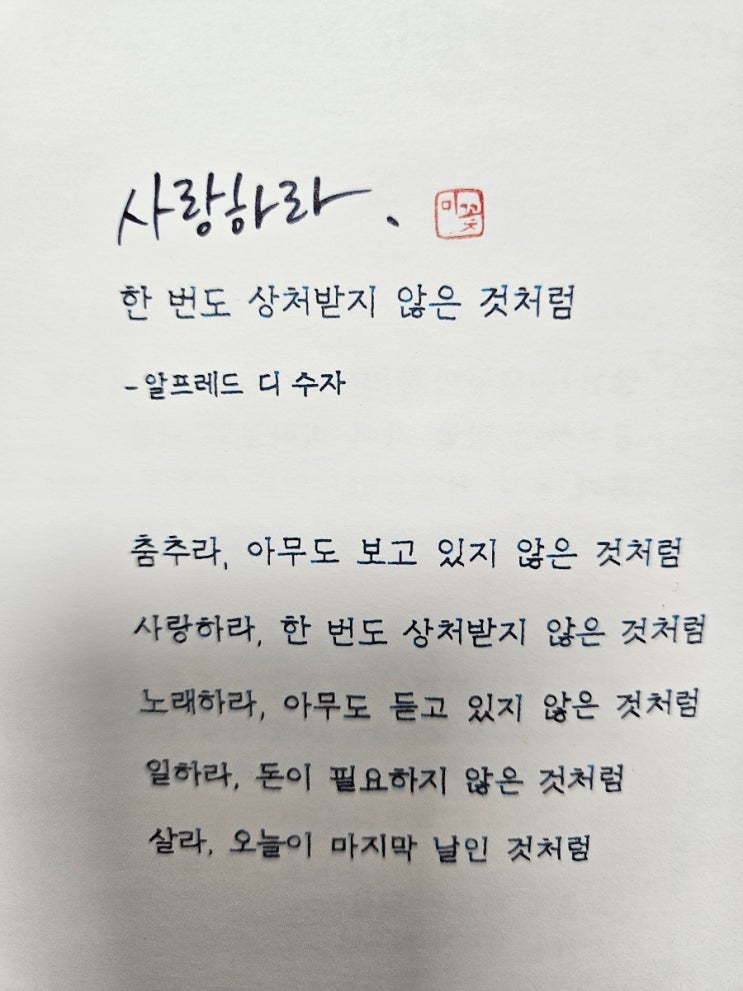 사랑하라.
미꽃
한 번도 상처받지 않은 것처럼
-알프레드 디 수자
춤추라, 아무도 보고 있지 않은 것처럼
사랑하라, 한 번도 상처받지 않은 것처럼
노래하라, 아무도 듣고 있지 않은 것처럼
일하라, 돈이 필요하지 않은 것처럼
살라, 오늘이 마지막 날인 것처럼